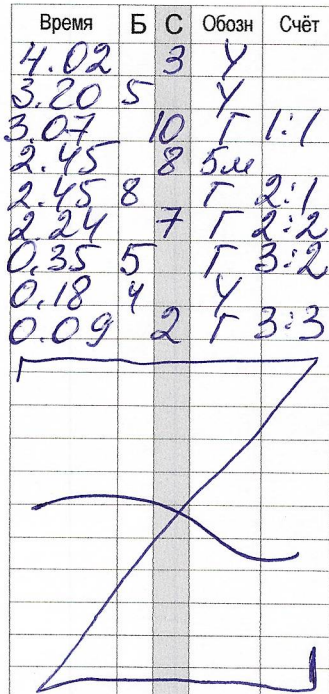 Время Б С Обозн Счёт
4.02 3 У
3.20 5 У
3.07 10 Г 1:1
2.45 8 5м
2.45 8 Г 2:1
2.24 7 Г 2:2
0.35 5 Г 3:2
0.18 4 У
0.09 2 Г 3:3